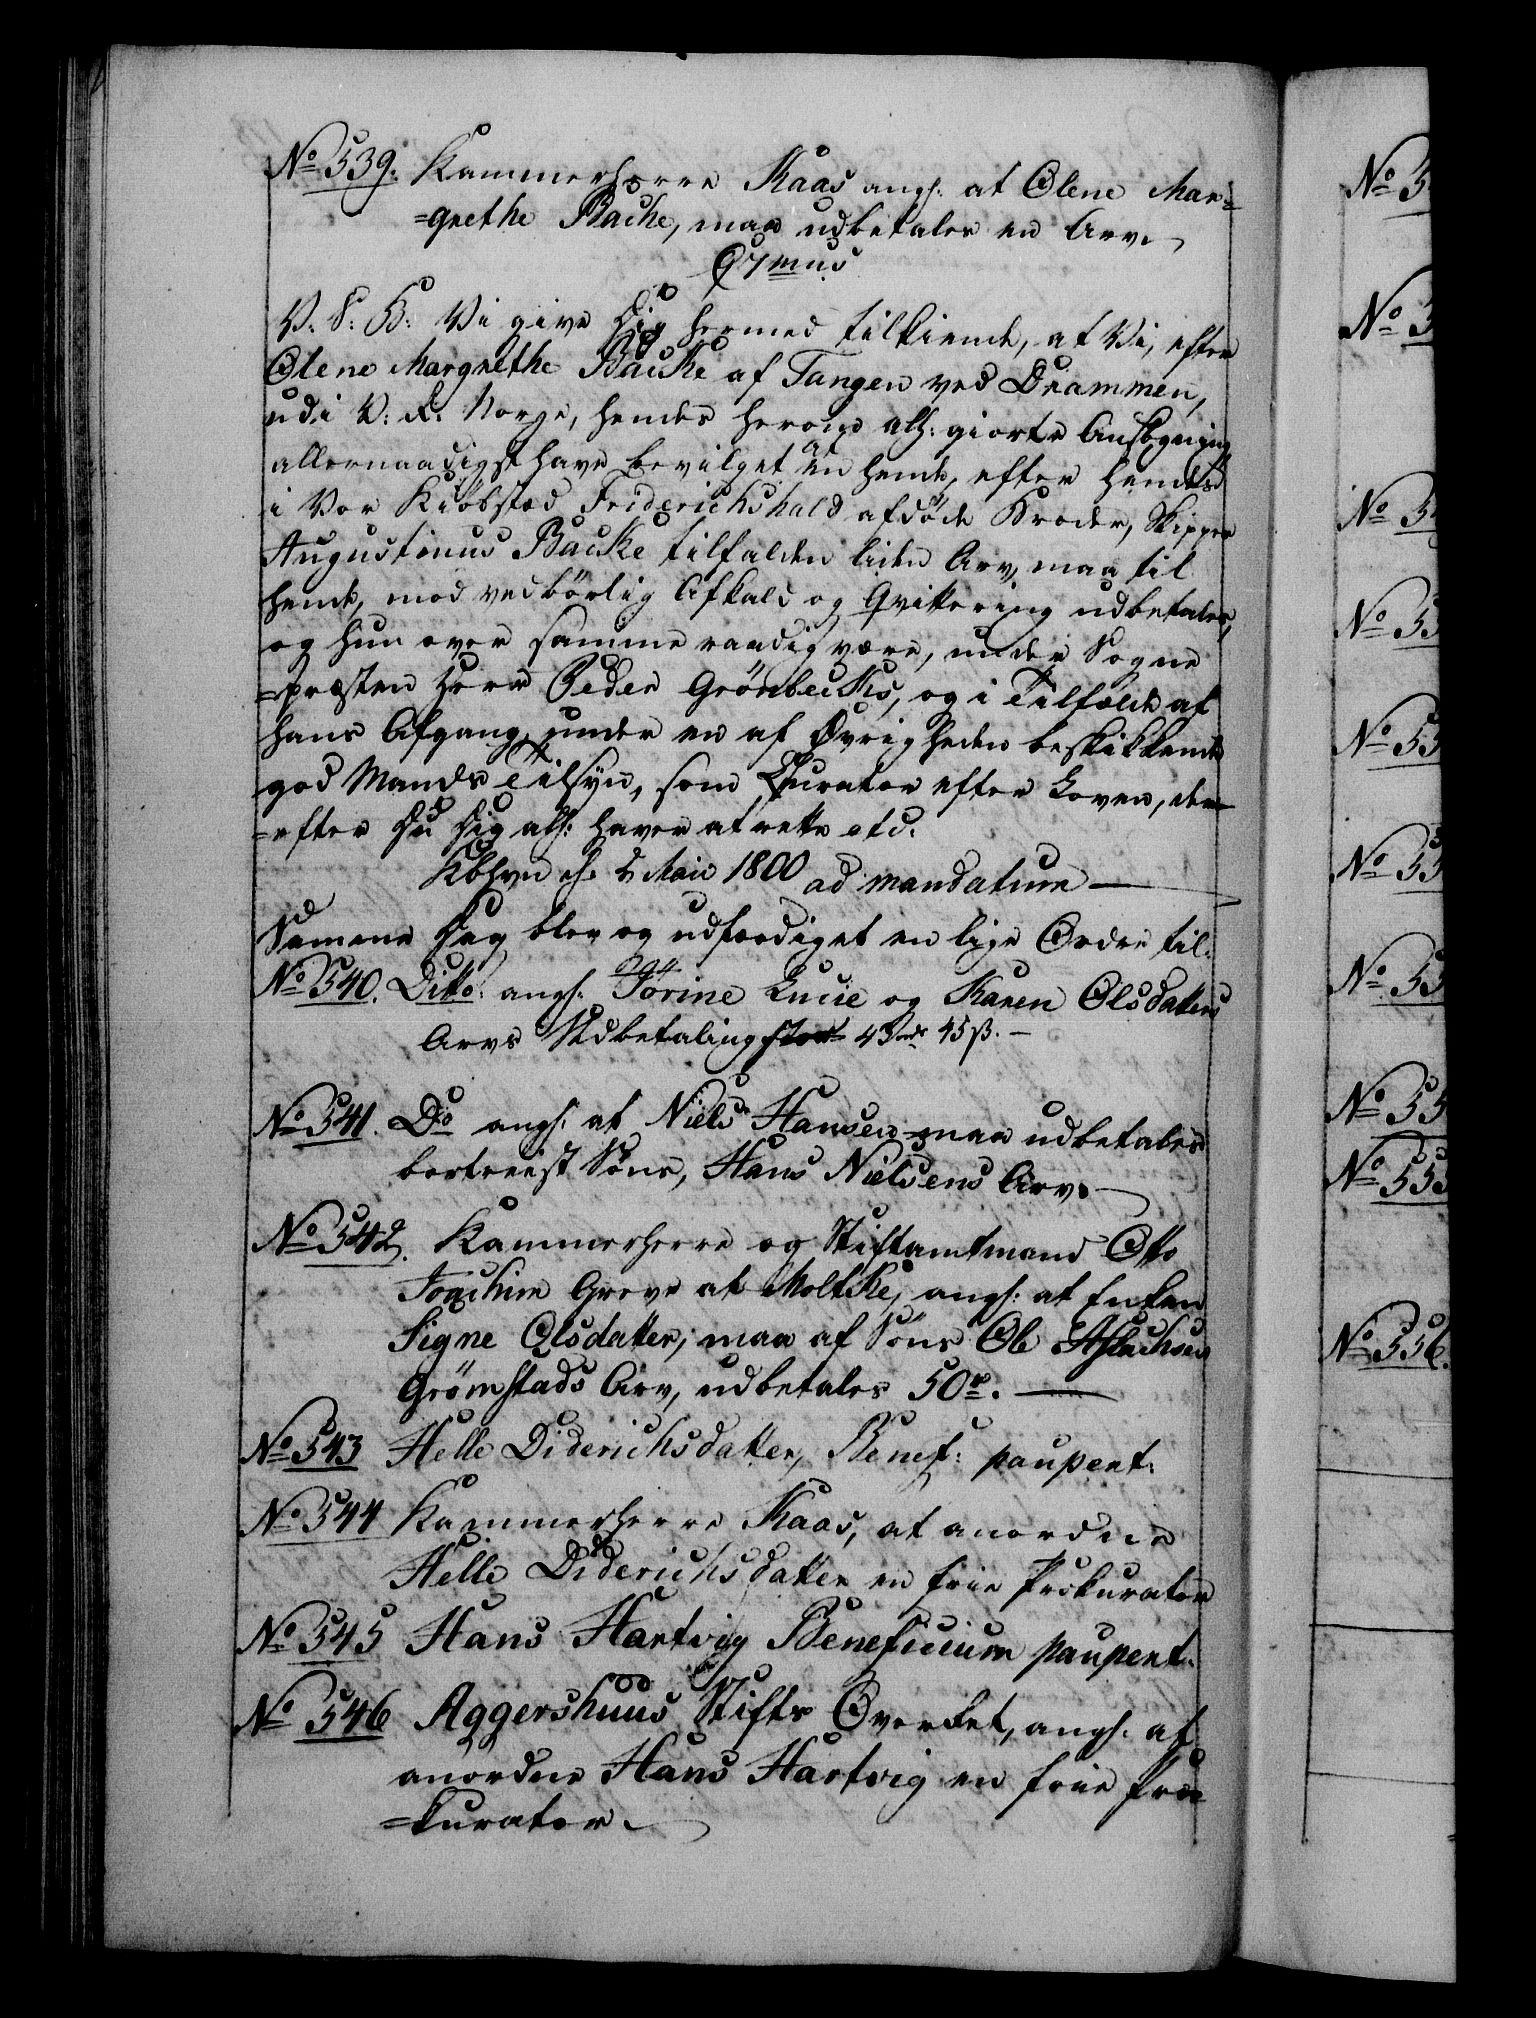 No 539. Kammerherre Kaas angl. at Olene Mar=
=grethe Backe, maa udbetales en Arv.
C7mus
V. S. B: Vi give Dig hermed tilkiende, at Vi, efter
Olene Margrethe Backe af Tangen ved Drammen,
udi V: R: Norge, hendes herom alh: giorte Ansøgning
allernaadigst have bevilget at en hende, efter hendes
i Vor Kiöbstad Friderichshald afdøde Broder, Skipper
Augustinus Backe tilfalden liden Arv, maa til
hende, mod vedbörlig Afkald og Qvittering udbetales,
og hun over samme raadig være, under Sogne
=præsten Herr Peder Grönbecks, og i Tilfælde af
hans Afgang, under en af Øvrigheden beskikkende
god Mands Tilsyn, som Curator efter Loven, der=
=efter Du Dig alh: haver at rette etc.
Kbhvn d. 2 Maii 1800 ad mandatum
Samme Dag blev og udfærdiget en lige Ordre til.
No 540. Ditto angl. Törine Lucie og Karen Olsdatters
Arvs Udbetaling stor 43 rdr 45 ß.
No 541. Do angl. at Niels Hansen maa udbetales
bortreist Söns, Hans Nielsens Arv.
No 542. Kammerherre og Stiftamtmand Otto
Joachim Greve at Moltke, angl: at Enken
Signe Olsdatter, maa af Söns Ole Aslachsen
Grömstads Arv, udbetales 50 r.
No 543 Helle Diderichsdatter, Benef: paupert:
No 544 Kammerherre Kaas, at anordne
Helle Diderichsdatter en frie Prokurator
No 545 Hans Hartvig Beneficium paupert.
No 546 Aggershuus Stifts Overret, angl. at
anordne Hans Hartvig en frie Pro=
=kurator.
No 5
No 5
No 5
No 55
No 55
No 55
No 55
No 55
No 555
No 556.